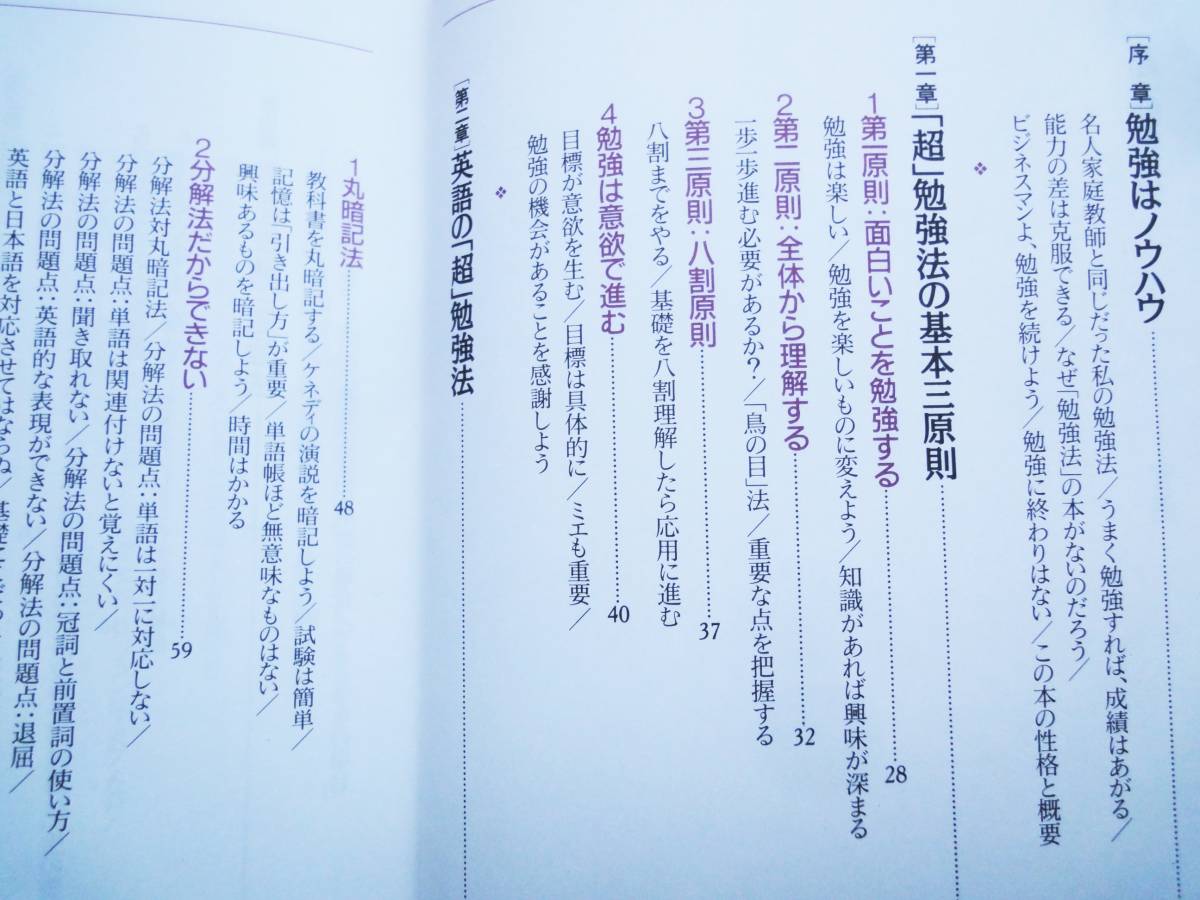 [序 章]勉強はノウハウ
名人家庭教師と同じだった私の勉強法/うまく勉強すれば、成績はあがる/
能力の差は克服できる/なぜ「勉強法」の本がないのだろう/
ビジネスマンよ、勉強を続けよう/勉強に終わりはない/この本の性格と概要
[第一章]「超」勉強法の基本三原則
1第一原則:面白いことを勉強する 28
勉強は楽しい/勉強を楽しいものに変えよう/知識があれば興味が深まる
2第二原則:全体から理解する 32
一歩一歩進む必要があるか?/「鳥の目」法/重要な点を把握する
3第三原則:八割原則 37
八割までをやる/基礎を八割理解したら応用に進む
4勉強は意欲で進む 40
目標が意欲を生む/目標は具体的に/ミエも重要/
勉強の機会があることを感謝しよう
[第二章]英語の「超」勉強法
1丸暗記法 48
教科書を丸暗記する/ケネディの演説を暗記しよう/試験は簡単/
記憶は「引き出し方」が重要/単語帳ほど無意味なものはない/
興味あるものを暗記しよう/時間はかかる
2分解法だからできない 59
分解法対丸暗記法/分解法の問題点:単語は一対一に対応しない/
分解法の問題点:単語は関連付けないと覚えにくい/
分解法の問題点:聞き取れない/分解法の問題点:冠詞と前置詞の使い方/
分解法の問題点:英語的な表現ができない/分解法の問題点:退屈/
英語と日本語を対応させてはならぬ/